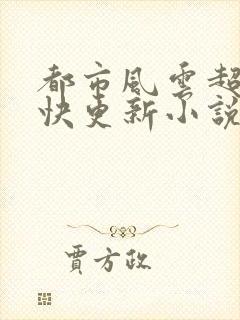 都市風雲超
快更新小說
賈方政